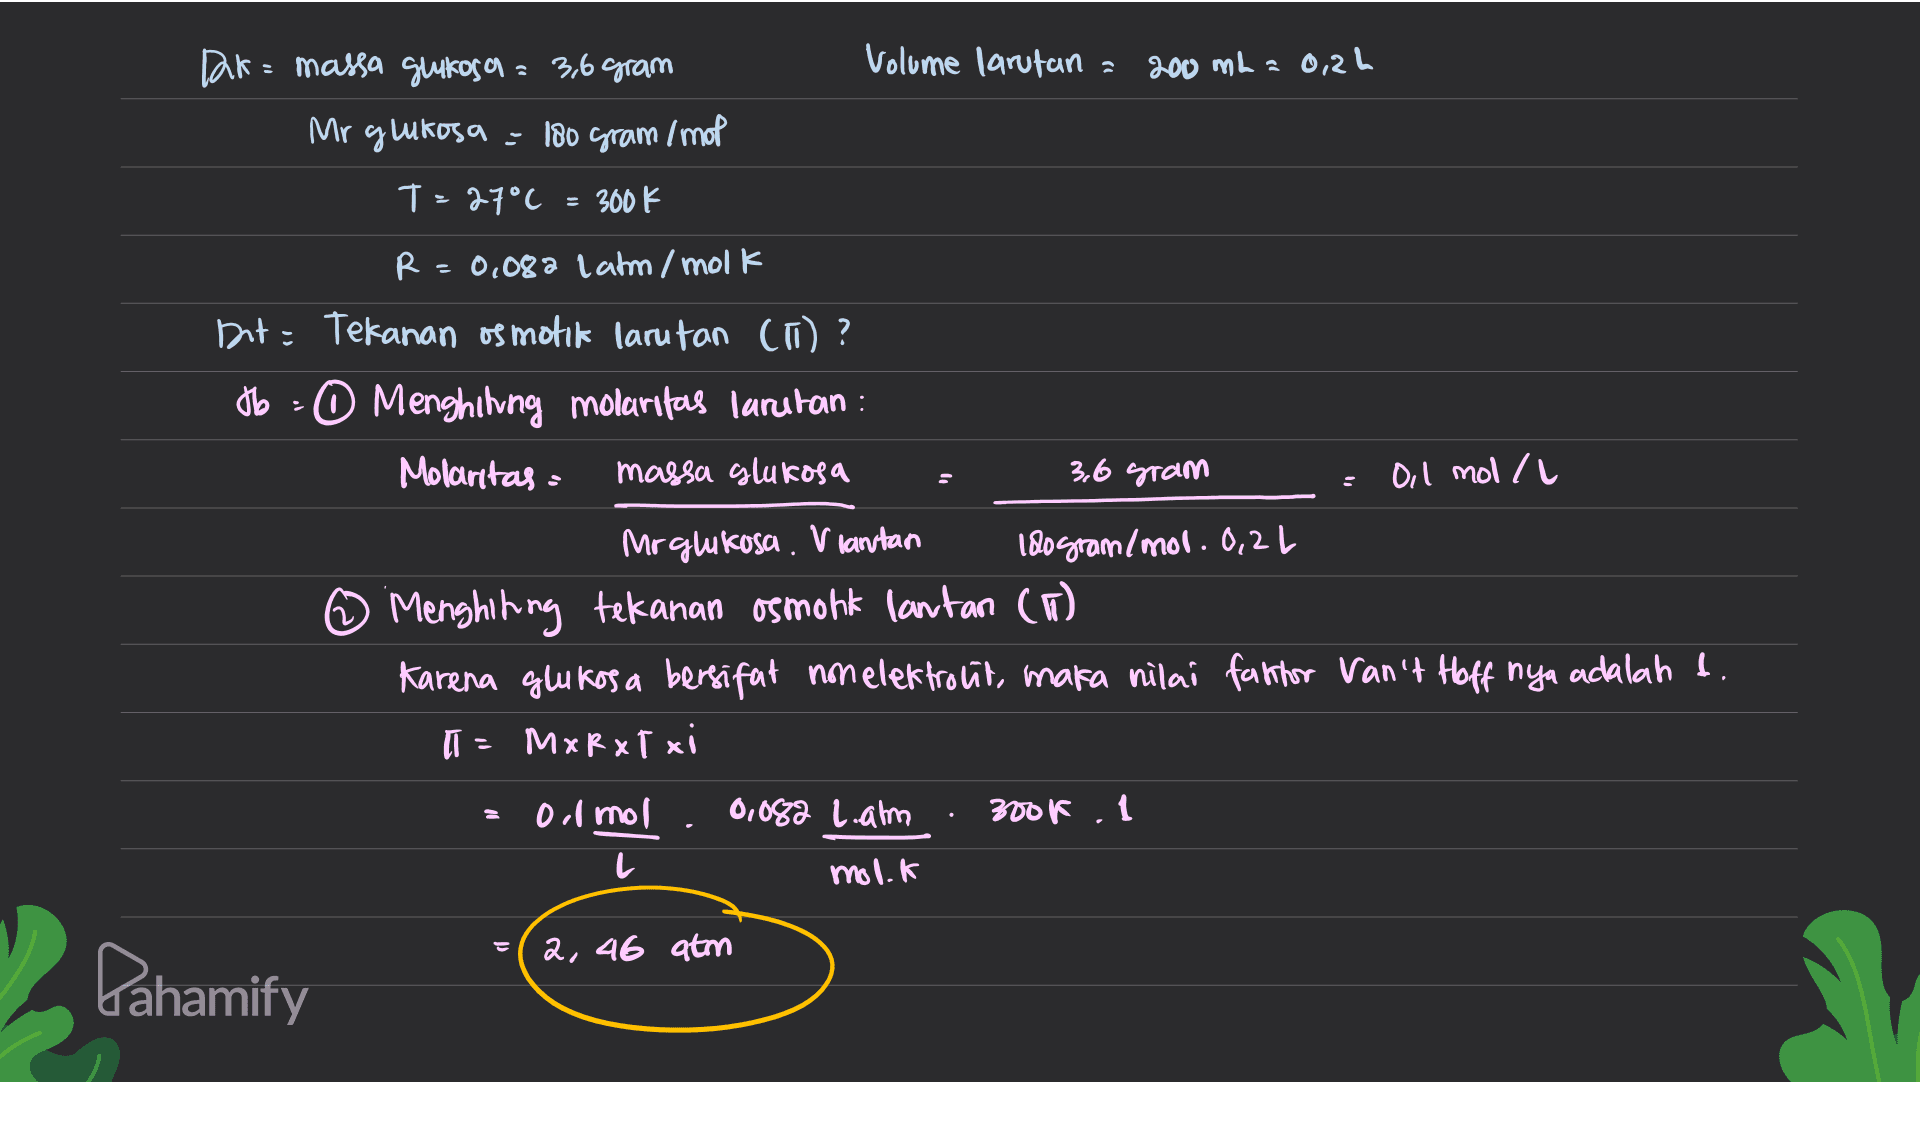 Dik = massa glukosa = 3,6 gram Volume larutan = 200 mL = 0,2 L
Mr glukosa = 180 gram/mol
T = 27°C = 300 K
R = 0,082 L atm/mol K
Dit = Tekanan osmotik larutan (π) ?
Jb = ① Menghitung molaritas larutan :
Molaritas = massa glukosa = 3,6 gram = 0,1 mol/L
Mr glukosa . V larutan 180 gram/mol . 0,2 L
② Menghitung tekanan osmotik larutan (π)
Karena glukosa bersifat nonelektrolit, maka nilai faktor Van't Hoff nya adalah 1.
π = M x R x T x i
= 0,1 mol . 0,082 L.atm . 300 K . 1
L mol.K
= 2,46 atm
Pahamify